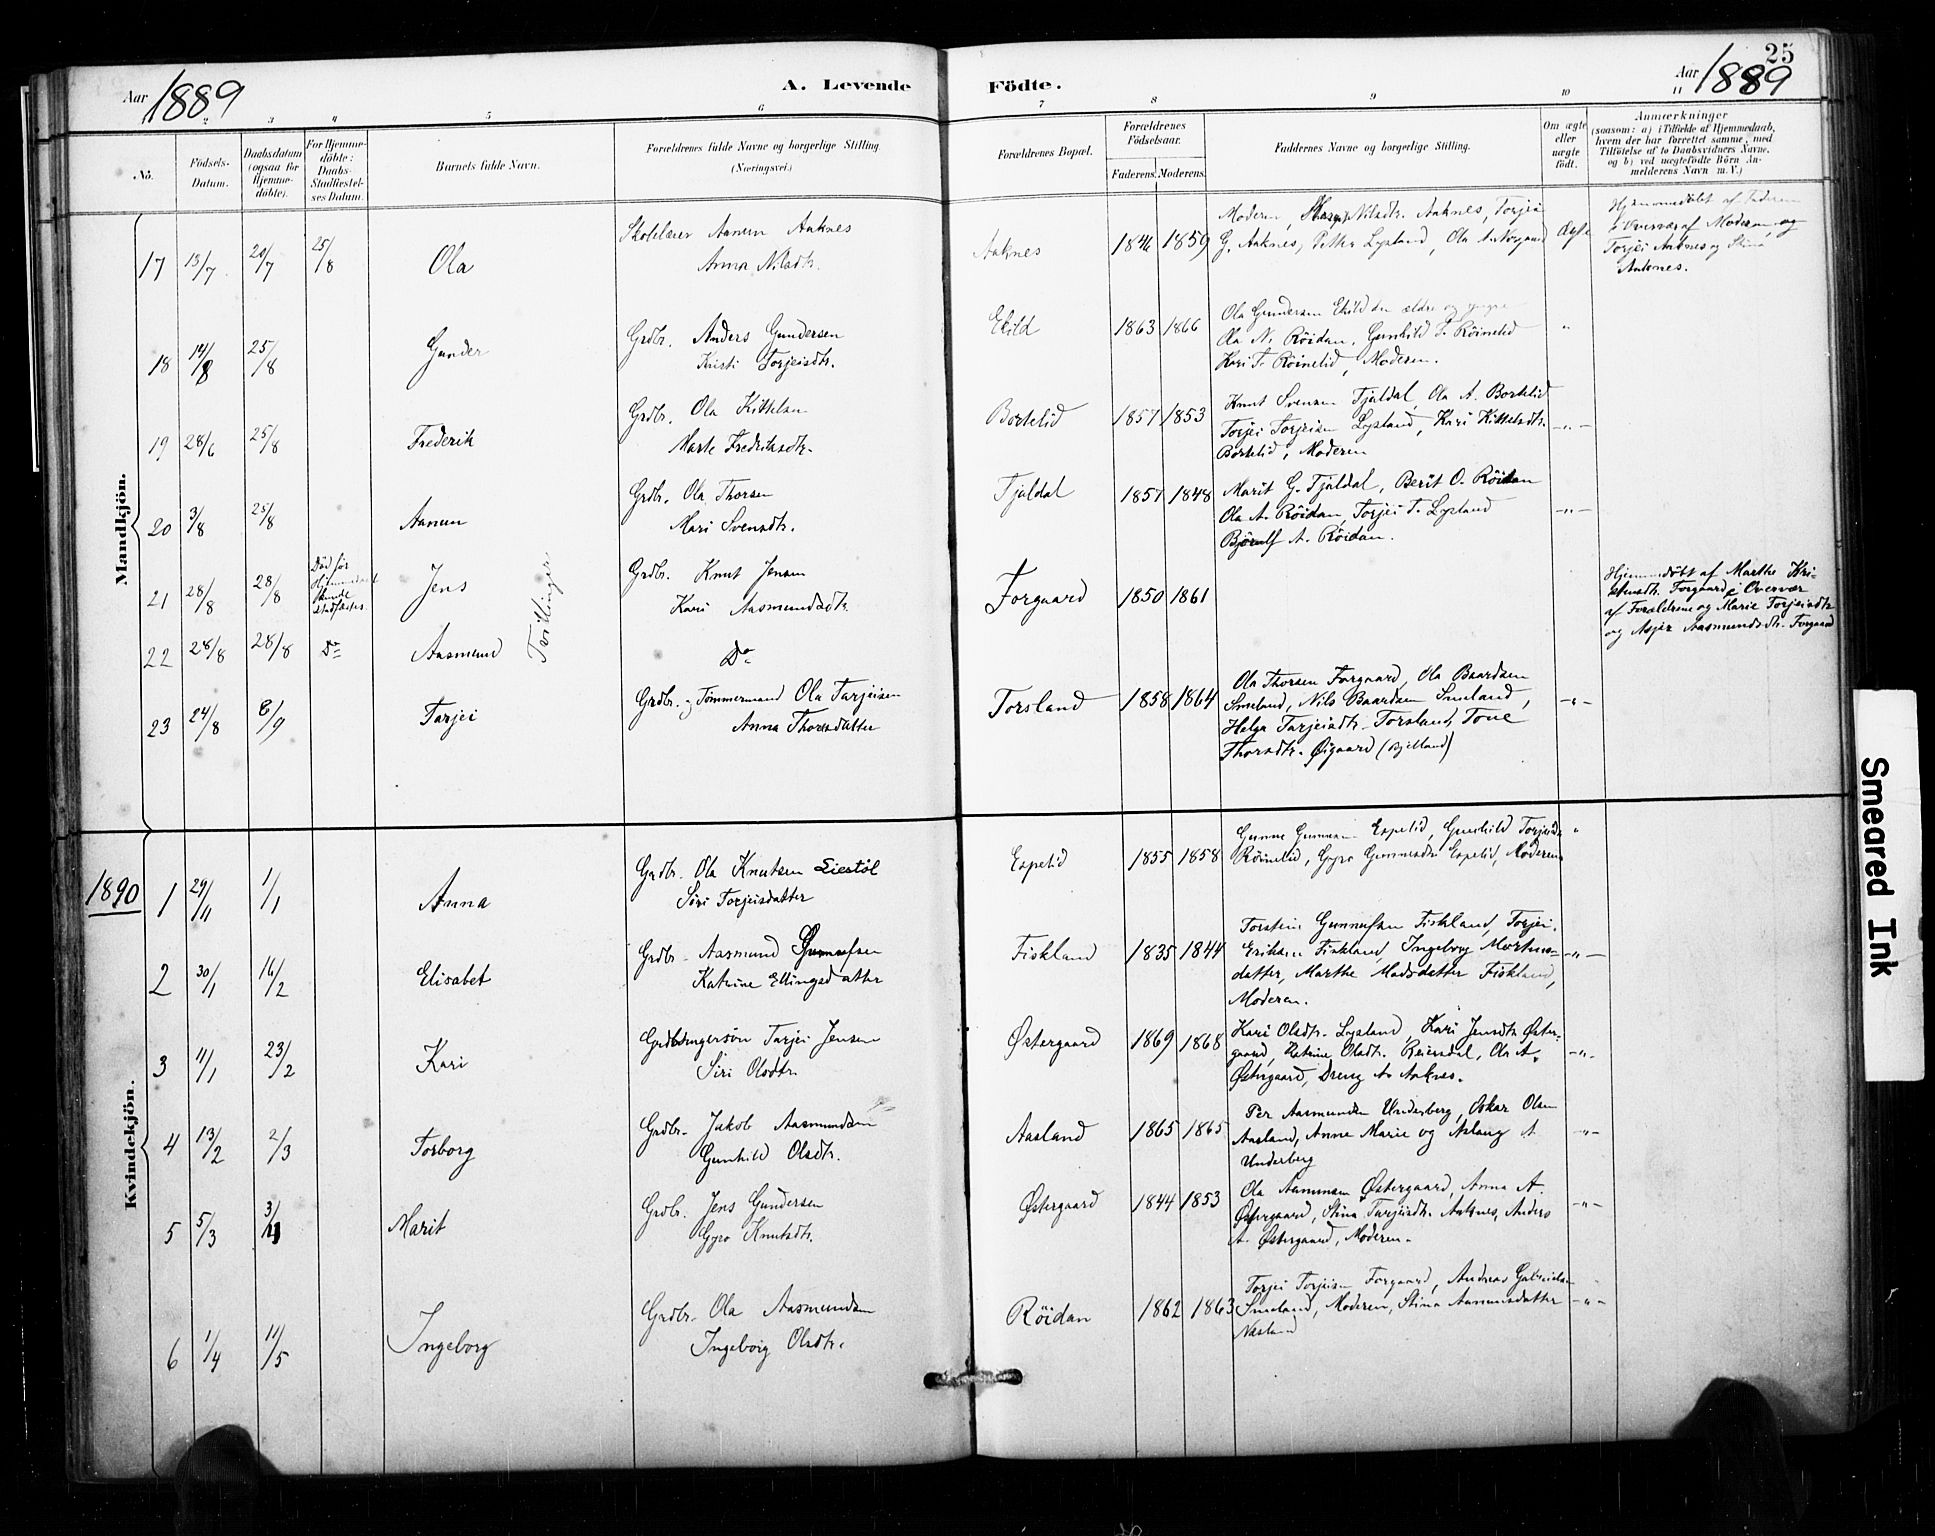 25
Aar 1889 A. Levende Födte. Aar 1889
2 3 4 5 6 7 8 9 10 11
No. Födsels-Datum. Daabsdatum (ogsaa for Hjemme-döbte). For Hjemme-döbte: Daabs-Stadfæstel-ses Datum. Barnets fulde Navn. Forældrenes fulde Navne og borgerlige Stilling. (Næringsvei.) Forældrenes Bopæl. Forældrenes Födselsaar. Faderens. Moderens. Faddernes Navne og borgerlige Stilling. Om ægte eller uægte födt. Anmærkninger (saasom: a) i Tilfælde af Hjemmedaab, hvem der har forrettet samme, med Tilföielse af to Daabsvidners Navne, og b) ved uægtefödte Börn An-melderens Navn m. V.)
Mandkjön.
17 13/7 20/7 25/8 Ola
Skolelærer Aanun Aaknes
Anna Nilsdtr.
Aaknes 1846 1859
Moderen, Nilsdtr. Aaknes, Torjei
G. Aaknes, Peter Lysland, Ola A. Norgaard
Ægte
Hjemmedöbt af Faderen
i Overvær af Moderen, og
Torjei Aaknes og Stina
Aaknes.
18 14/8 25/8 Gunder
Grdbr. Anders Gundersen
Kristi Torjeisdtr.
Ekild 1863 1866
Ola Gundersen Ekild den ældre og yngre
Ola N. Röidan, Gunhild T. Röinelid
Kari T. Röinelid, Moderen.
"
19 28/6 25/8 Frederik
Grdbr. Ola Kittelsen
Marte Fredriksdtr.
Bortelid 1857 1853
Knut Svensen Tjaldal, Ola A. Bortelid
Torjei Torjeisen Lysland, Kari Kittelsdtr.
Bortelid, Moderen
-"-
20 3/8 25/8 Aanun
Grdbr. Ola Thorsen
Mari Svensdtr.
Tjaldal 1857 1848
Marit G. Tjaldal, Berit O. Röidan
Ola A. Röidan, Torjei T. Lysland
Björnulf A. Röidan.
-"-
21 28/8 28/8 Död för Hjemmedaab kunde stadfæstes. Jens
Tvillinger
Grdbr. Knut Jensen
Kari Aasmundsdtr.
Forgaard 1850 1861
Hjemmedöbt af Marthe Kri-
stensdtr. Forgaard i Overvær
af Forældrene og Marie Torjeisdtr.
og Asjer Aasmundsdtr. Forgaard
22 28/8 28/8 Do Aasmund Do
23 24/8 8/9 Tarjei
Grdbr. og Tömmermand Ola Tarjeisen
Anna Thorsdatter
Torsland 1858 1864
Ola Thorsen Forgaard, Ola Baardsen
Smeland, Nils Baardsen Smeland,
Helga Tarjeisdtr. Torsland, Tone
Thorsdtr. Øigaard (Bjelland)
-"-
1890
Kvindekjön.
1 29/11 1/1 Anna
Grdbr. Ola Knutsen Liestöl
Siri Torjeisdatter
Espelid 1855 1858
Gunne Gunnesen Espelid, Gunhild Torjeisdtr.
Röinelid, Gyro Gunnesdtr. Espelid, Moderen
"
2 30/1 16/2 Elisabet
Grdbr. Aasmund Gunnufsen
Katrine Ellingsdatter
Fiskland 1835 1844
Torstein Gunnufsen Fiskland, Torjei
Eriksen Fiskland, Ingeborg Mortens-
datter, Marthe Madsdatter Fiskland,
Moderen.
-"-
3 11/1 23/2 Kari
Grdbrugersön Tarjei Jensen
Siri Olsdtr.
Østergaard 1869 1868
Kari Olsdtr. Lysland, Kari Jensdtr. Øster-
gaard, Katrine Olsdtr. Reiersdal, Ola A.
Østergaard, Dreng A. Aaknes.
-"-
4 13/2 2/3 Torborg
Grdbr. Jakob Aasmundsen
Gunhild Olsdtr.
Aasland 1865 1865
Per Aasmundsen Underberg, Oskar Olsen
Aasland, Anne Marie og Aslaug A.
Underberg
-"-
5 5/3 3/4 Marit
Grdbr. Jens Gundersen
Gyro Knutsdtr.
Østergaard 1844 1853
Ola Aanunsen Østergaard, Anna A.
Østergaard, Stina Tarjeisdtr. Aaknes, Anders
A. Østergaard, Moderen.
-"-
6 1/4 11/5 Ingeborg
Grdbr. Ola Aasmundsen
Ingeborg Olsdtr.
Röidan 1862 1863
Torjei Torjeisen Forgaard, Andreas Gabrielsen
Smeland, Moderen, Stina Aanunsdatter
Aasland
-"-
Smeared Ink